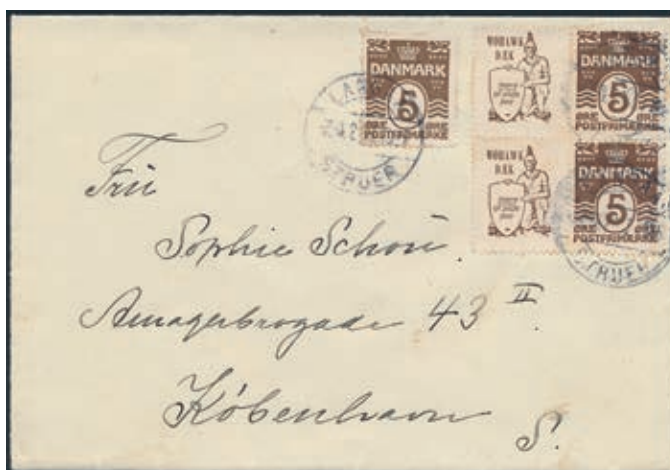 DANMARK
5
ØRE ØRE
POSTFRIMÆRKE
MOHAWK
DÆK
DANMARK
5
ØRE ØRE
POSTFRIMÆRKE
MOHAWK
DÆK
DANMARK
5
ØRE ØRE
POSTFRIMÆRKE
STRUER
STRUER
Fru
Sophie Schou.
Amagerbrogade 43 II.
København
S.